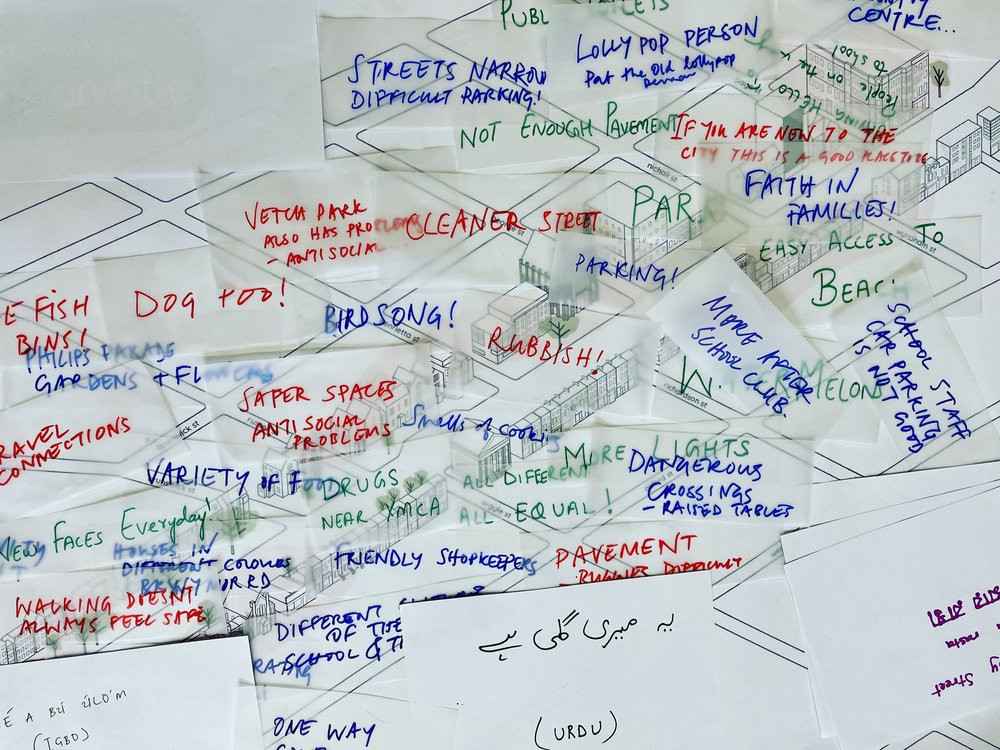 STREETS NARROW
DIFFICULT PARKING!
LOLLYPOP PERSON
Put the old lollypop
CENTRE...
to school
People on the
HELLO
NOT ENOUGH PAVEMENT
IF YOU ARE NEW TO THE
CITY THIS IS A GOOD PLACE TO BE
nicholl st
FAITH IN
FAMILIES!
VETCH PARK
ALSO HAS PROBLEMS
- ANTI SOCIAL ...
CLEANER STREET
PAR
EASY ACCESS TO
BEAC
PARKING!
E FISH
BINS!
DOG TOO!
BIRDSONG!
henrietta st
RUBBISH!
MORE AFTER
SCHOOL CLUB.
SCHOOL STAFF
CAR PARKING
IS NOT GOOD
PHILIPS PARADE
GARDENS + FL
SAFER SPACES
ANTI SOCIAL
PROBLEMS
richardson st
W MELON
RAVEL
CONNECTIONS
Smells of
VARIETY OF
DRUGS
NEAR YMCA
ALL DIFFERENT
ALL EQUAL!
MORE LIGHTS
DANGEROUS
CROSSINGS
- RAISED TABLES
argyle st
FACES Everyday!
HOUSES IN
DIFFERENT COLOURS
FRIENDLY SHOPKEEPERS
PAVEMENT
- BUGGIES DIFFICULT
WALKING DOESN'T
ALWAYS FEEL SAFE
DIFFERENT
OF THE
SCHOOL &
یہ میری گلی ہے
(URDU)
É A BỤ ÚLO'M
(IGBO)
Street
ONE WAY